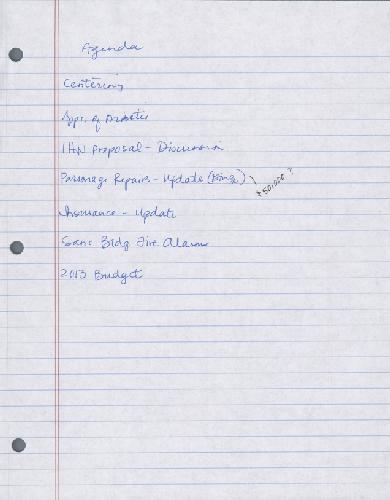 Agenda
Centering
Appr. of Minutes
Proposal - Discussion
Parsonage Repairs - Update
Insurance - Update
Sanc Bldg Fire Alarm
2013 Budget